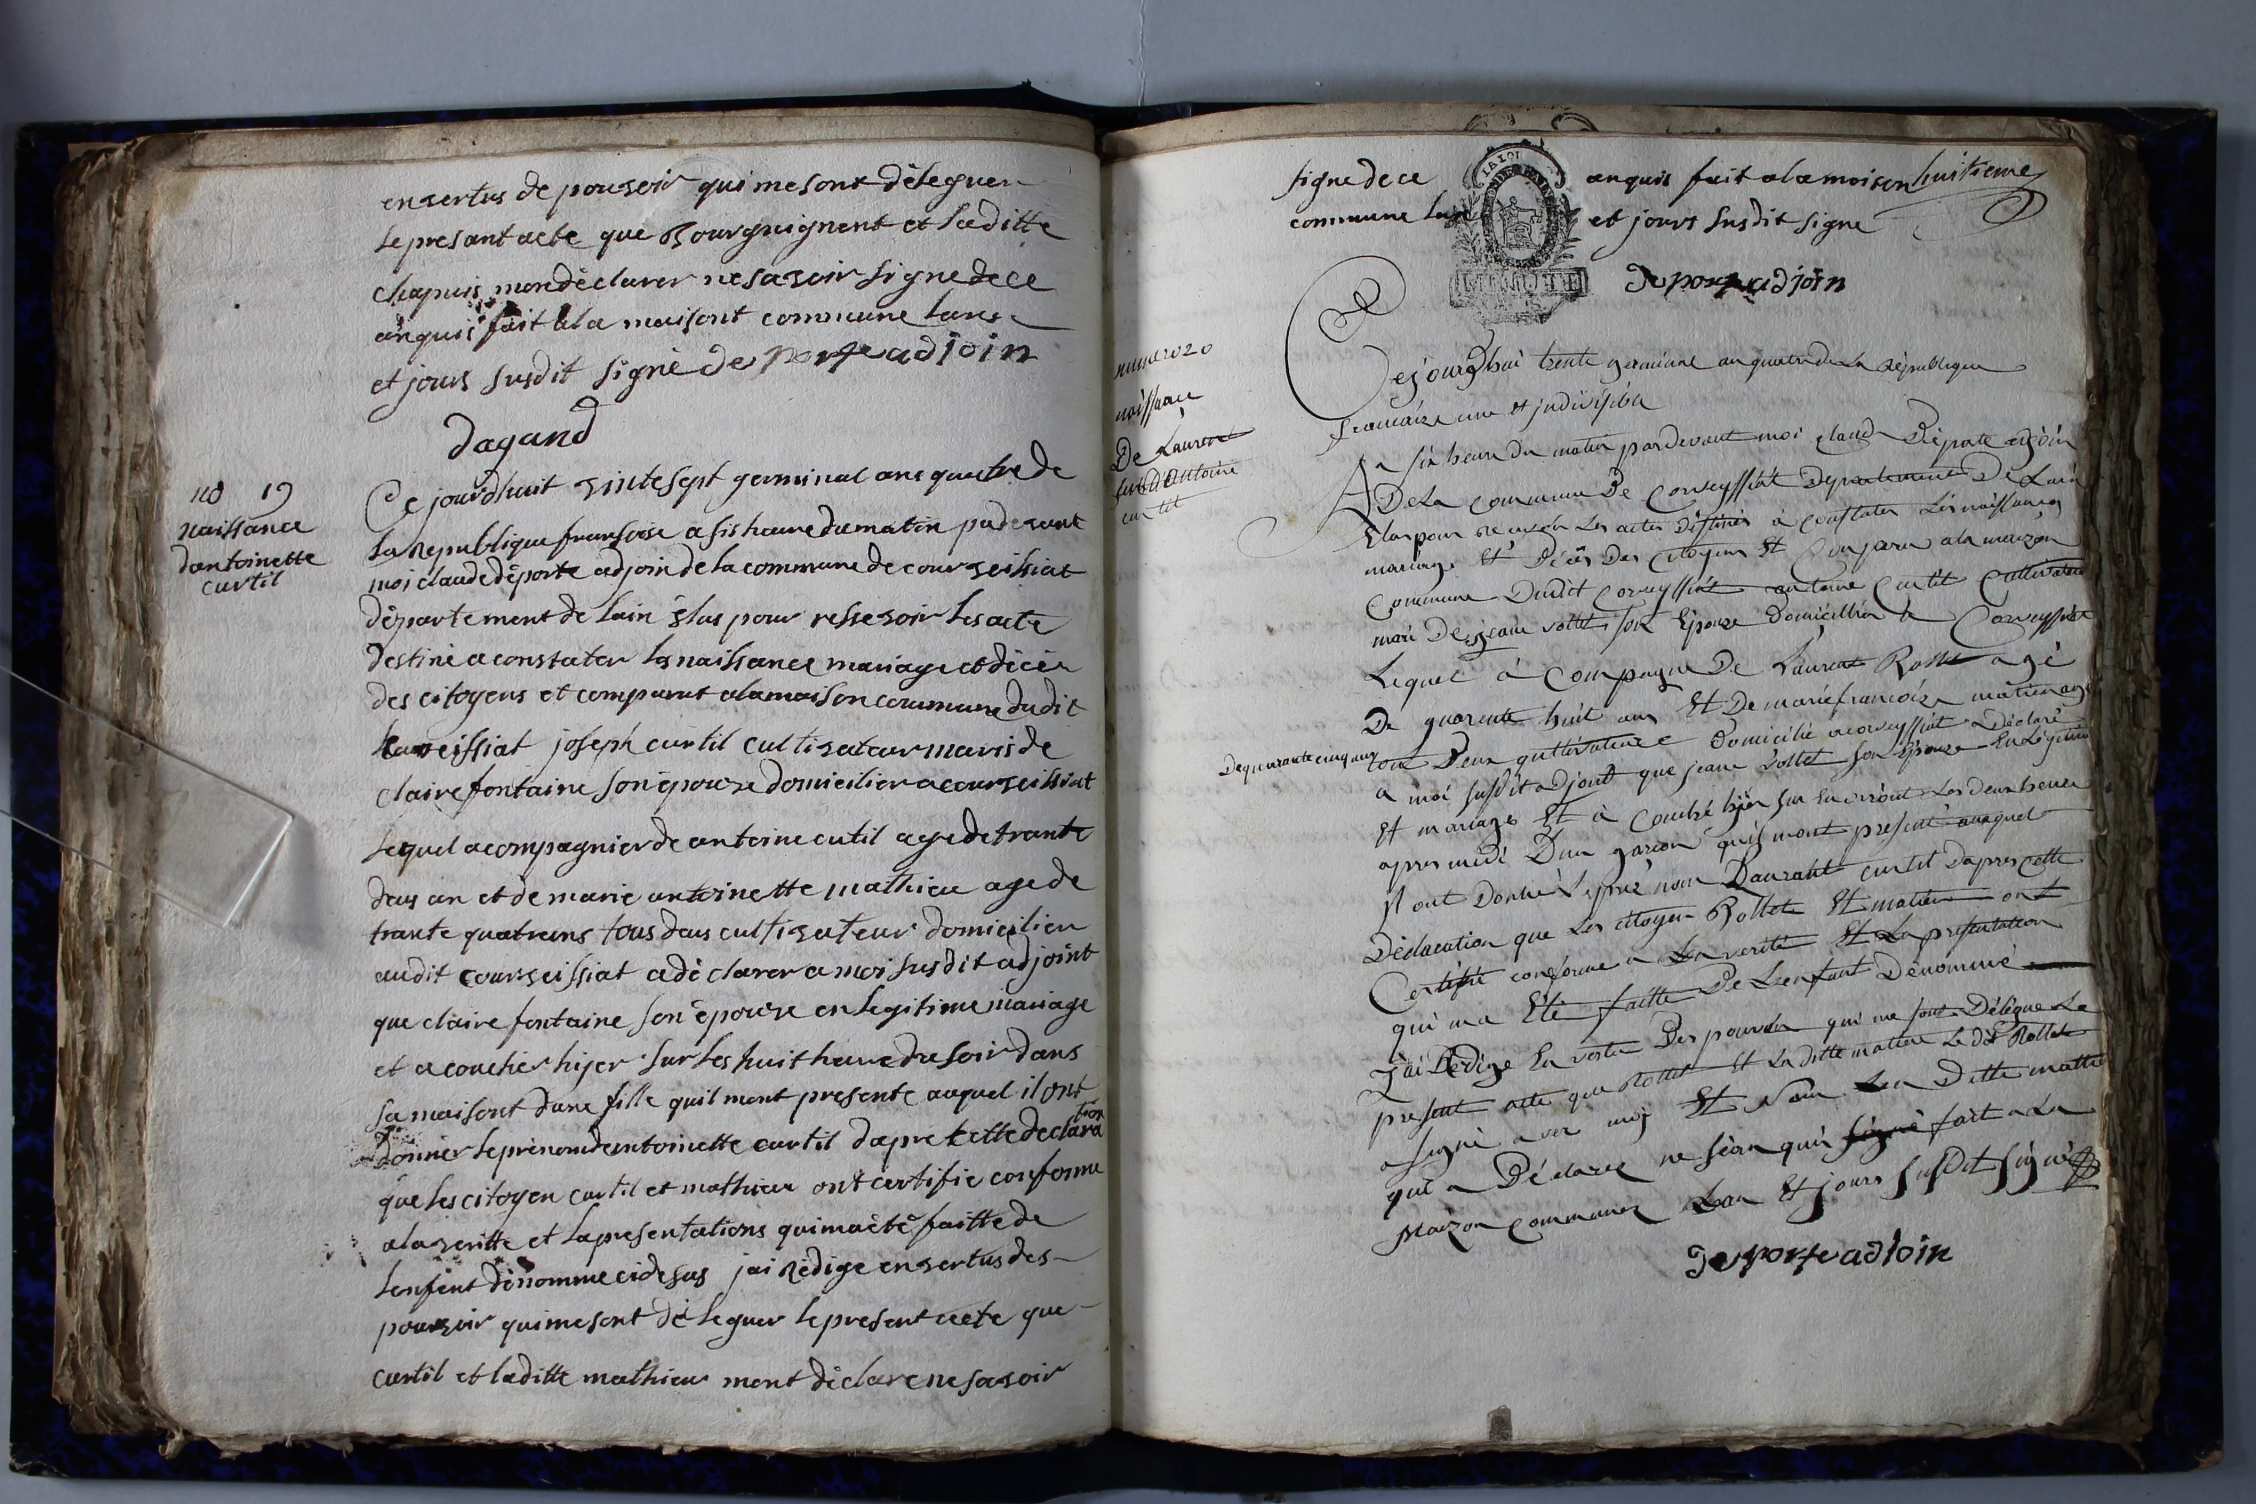 en vertus de pouvoir qui me sont déleguer
le presant acte que Bourguignent et laditte
chapuis mon déclarer ne savoir signe de ce
anquis fait a la maisont commune lans
et jours susdit signé deporte adjoin
dagand
no 19
naissance
dantoinette
curtil
Ce jourdhuit vintesept germinal ans quatre de
la republique fransoise a sis heure du matin pade vant
moi claude déporte adjoin de la commune de courveissiat
département de lain élus pour resse voir les acte
destiné a constater les naissance mariage et décèr
des citoyens et comparut a la maison commune dudit
courveissiat joseph curtil cultivateur maris de
claire fontaine son épouze domicilier a courveissiat
lequel acompagnier de antoine cutil age de trante
deus an et de marie antoinette mathieu age de
trante quatre ans tous deus cultivateur domicilier
audit courveissiat a déclarer a moi susdit adjoint
que claire fontaine son épouze en legitime mariage
et acoucher hijer sur les huit heure du soir dans
sa maisont dune fille quil mont presente auquel il ont
donner le prenom dantoinette curtil dapre cette declara
tion
que les citoyen curtil et mathieu ont certifie conforme
a la veritte et la presentations qui ma été faitte de
lenfent dénomme cidesus jai rédige en vertus des
pouvoir qui me sont déleguer le present acte que
curtil et laditte mathieu mont déclare ne savoir
signe de ce anquis fait a la moison huitieme
commune lans et jours susdit signe
LA LOI
deporte adjoin
numero 20
naissance
De Laurent
fils d'Antoine
curtil
Cejourdhui trente germinal an quatre de La République
francaize une et jndivisible
A six heure du matin pardevant moi claude Déporte adjoin
De La commune De Corveyssiat Departement De Lain
Elus pour recevoir Les actes Destinés à constater Les naissances
mariage Et Décès Des Citoyens Et Comparu a la maizon
Commune Dudit Corveyssiat antoine Curtil Cultivateur
mari De jeane vollet son Epouze Domicillié a Corveyssiat
Lequel à Compagne De Laurent Rollet agé
De quarente huit ans Et De marie francoize matieu agé
De quarante cinq ans
tous Deux qultivateurs Domicilié a corveyssiat a Déclaré
a moi susdit adjoint que jeane vollet son Epouze En Légitime
Et mariage Et à Couché hijer sur Les Deux heures
apres midi D'un garcon quil mont presenté auquel
Jl ont Donné Le pré nom Laurant curtil Dapres cette
Déclaration que Les citoyen Rollet Et matieu ont
Certifié conforme a La verité Et La presentation
qui ma Eté faitte De Lenfant Dénommé
Jai Rédige En vertu Des pouvoir qui me sont Délégue Le
present acte que Rollet Et La ditte matieu Le dit Rollet
a signé avec moj Et Non La Ditte matieu
qui a Déclaree ne séan qui signé fait a La
Maizon commune Lan Et jours susdit signé
deporte adjoin